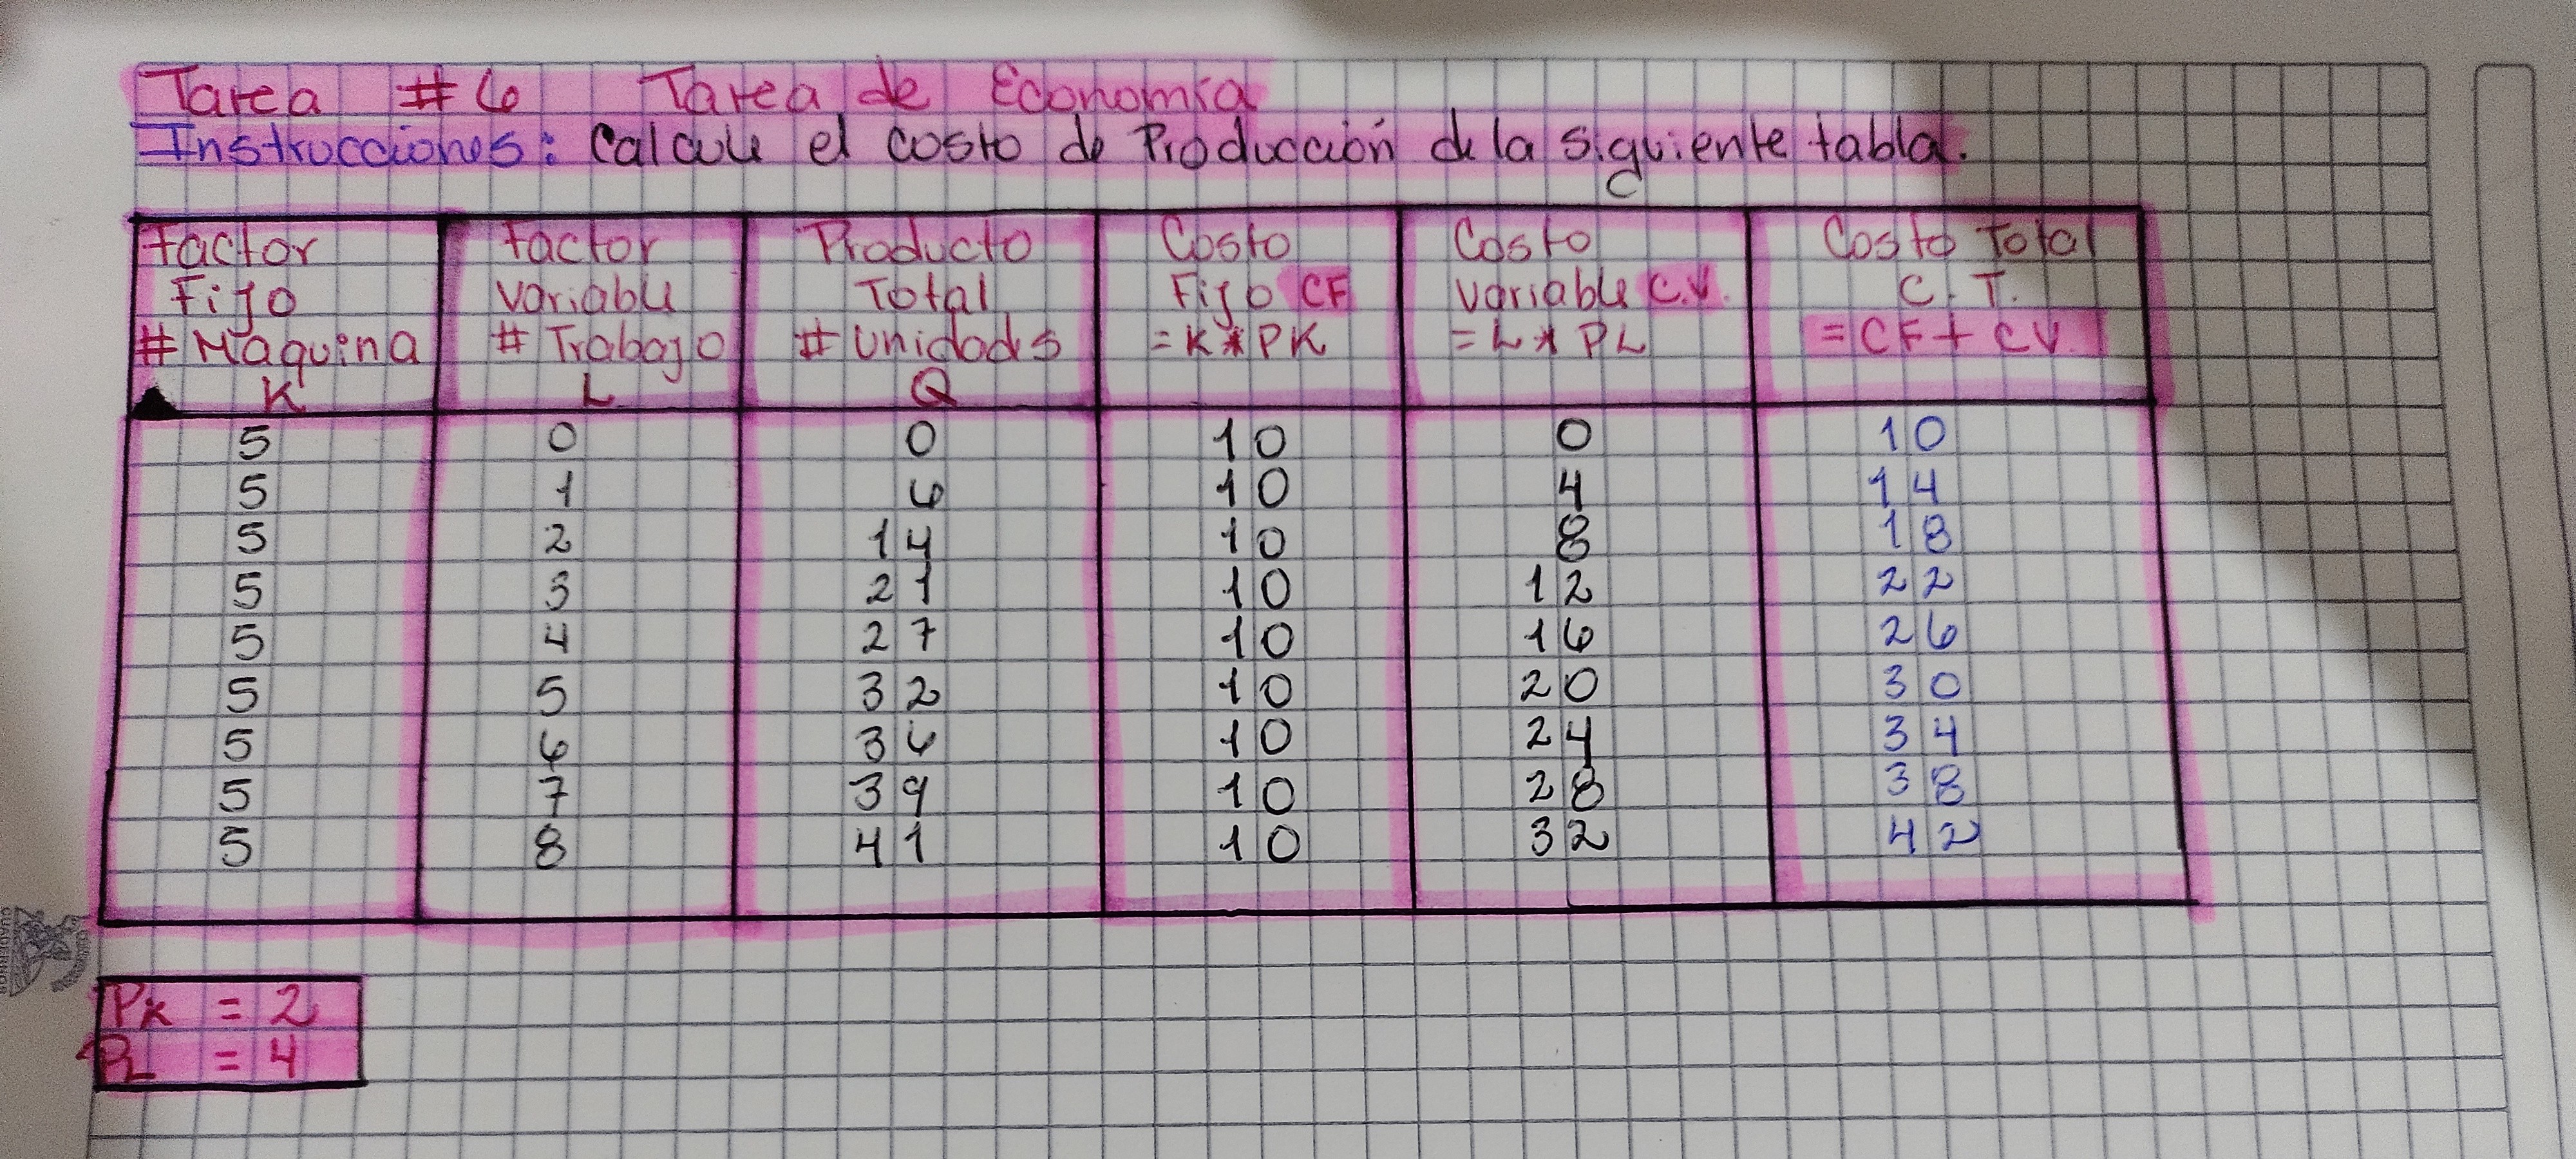 Tarea #6 Tarea de Economía
Instrucciones: Calcule el costo de Producción de la siguiente tabla.
Factor Fijo # Maquina K
Factor variable # Trabajo L
Producto Total # Unidades Q
Costo Fijo CF = K * PK
Costo variable C.V. = L * PL
Costo Total C.T. = CF + CV.
5 0 0 10 0 10
5 1 6 10 4 14
5 2 14 10 8 18
5 3 21 10 12 22
5 4 27 10 16 26
5 5 32 10 20 30
5 6 36 10 24 34
5 7 39 10 28 38
5 8 41 10 32 42
PK = 2
PL = 4